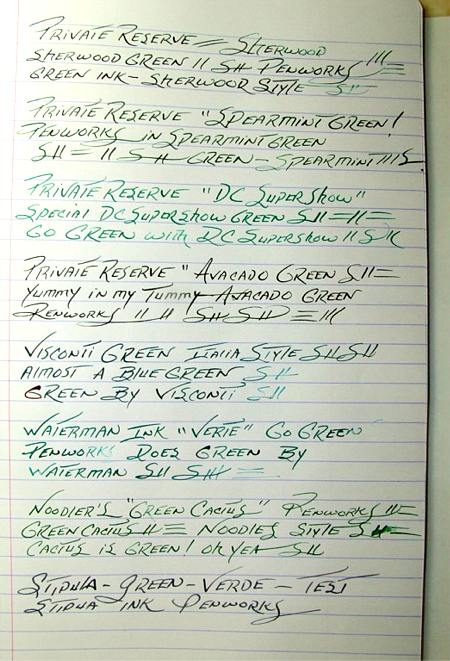 Private Reserve = Sherwood
Sherwood Green 11 SH Penworks 111=
Green Ink - Sherwood Style SH
Private Reserve "Spearmint Green!
Penworks in Spearmint Green
SH = 11 SH Green - Spearmint 111S.
Private Reserve "DC Supershow"
Special DC Supershow Green SH =11=
Go Green with DC Supershow 11 SK
Private Reserve "Avacado Green SH=
Yummy in my Tummy Avacado Green
Penworks 11 11 SH SH = 111
Visconti Green Italia Style SH SH
Almost a Blue Green SH
Green By Visconti SH
Waterman Ink "Verte" Go Green
Penwork! Does Green By
Waterman SH SH =
Noodler's "Green Cactus" Penworks 11=
Green Cactus 11 = Noodles Style SH
Cactus is Green! Oh Yea SH
Stipula - Green - Verde - Test
Stipua Ink Penworks